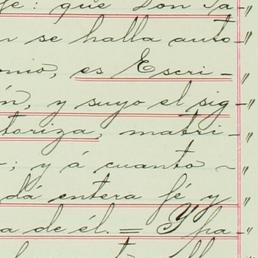 fe: que Don Ja-"
n se halla auto-"
onio, es Escri-"
ón, y suyo el sig-"
toriza; matri-"
-; y á cuanto -"
dá entera fé y "
a de él. = Y pa-"